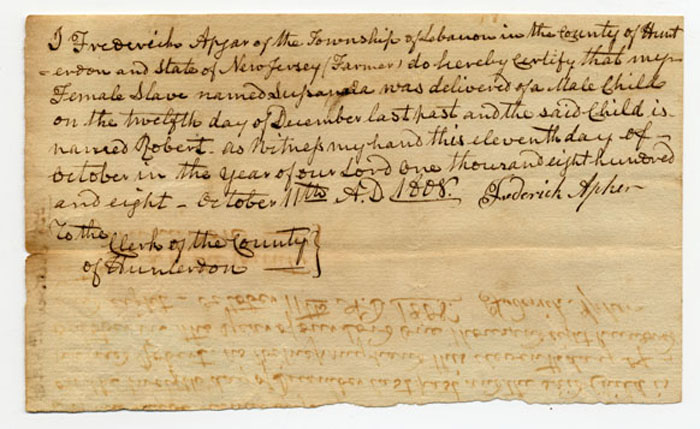 I Frederick Apgar of the Township of Lebanon in the County of Hunt
-erdon and State of New Jersey (Farmer) do hereby Certify that my
Female Slave named Susanada was delivered of a Male Child
on the twelfth day of December last past and the said Child is
named Robert - as Witness my hand this eleventh day of -
October in the year of our Lord one thousand eight hundred
and eight - October 11th A.D 1808. Frederick Apher
To the
Clerk of the County
of Hunterdon